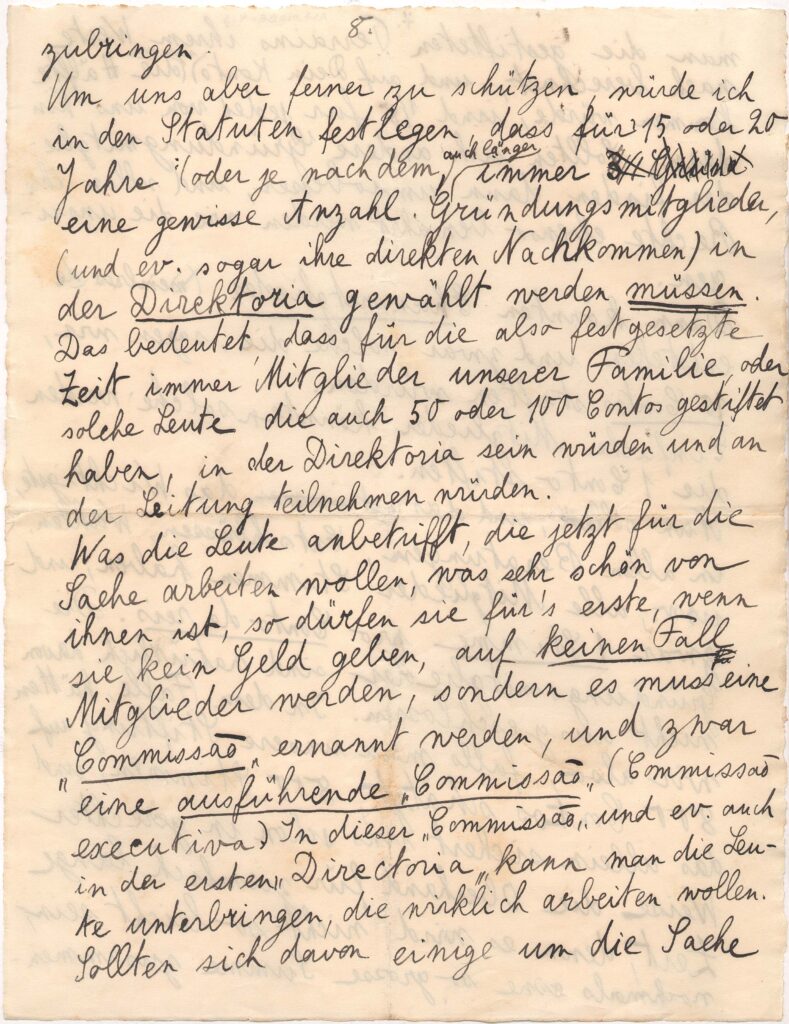 8.
zubringen.
Um uns aber ferner zu schützen, würde ich
in den Statuten festlegen, dass für 15 oder 20
Jahre (oder je nachdem, auch länger) immer
eine gewisse Anzahl Gründungsmitglieder,
(und ev. sogar ihre direkten Nachkommen) in
der Direktoria gewählt werden müssen.
Das bedeutet, dass für die also festgesetzte
Zeit immer Mitglieder unserer Familie, oder
solche Leute die auch 50 oder 100 Contos gestiftet
haben, in der Direktoria sein würden und an
der Leitung teilnehmen würden.
Was die Leute anbetrifft, die jetzt für die
Sache arbeiten wollen, was sehr schön von
ihnen ist, so dürfen sie für's erste, wenn
sie kein Geld geben, auf keinen Fall
Mitglieder werden, sondern es muss eine
„Commissão„ ernannt werden, und zwar
eine ausführende „Commissão„ (Commissão
executiva). In dieser „Commissão„ und ev. auch
in der ersten „Directoria„ kann man die Leu-
te unterbringen, die wirklich arbeiten wollen.
Sollten sich davon einige um die Sache